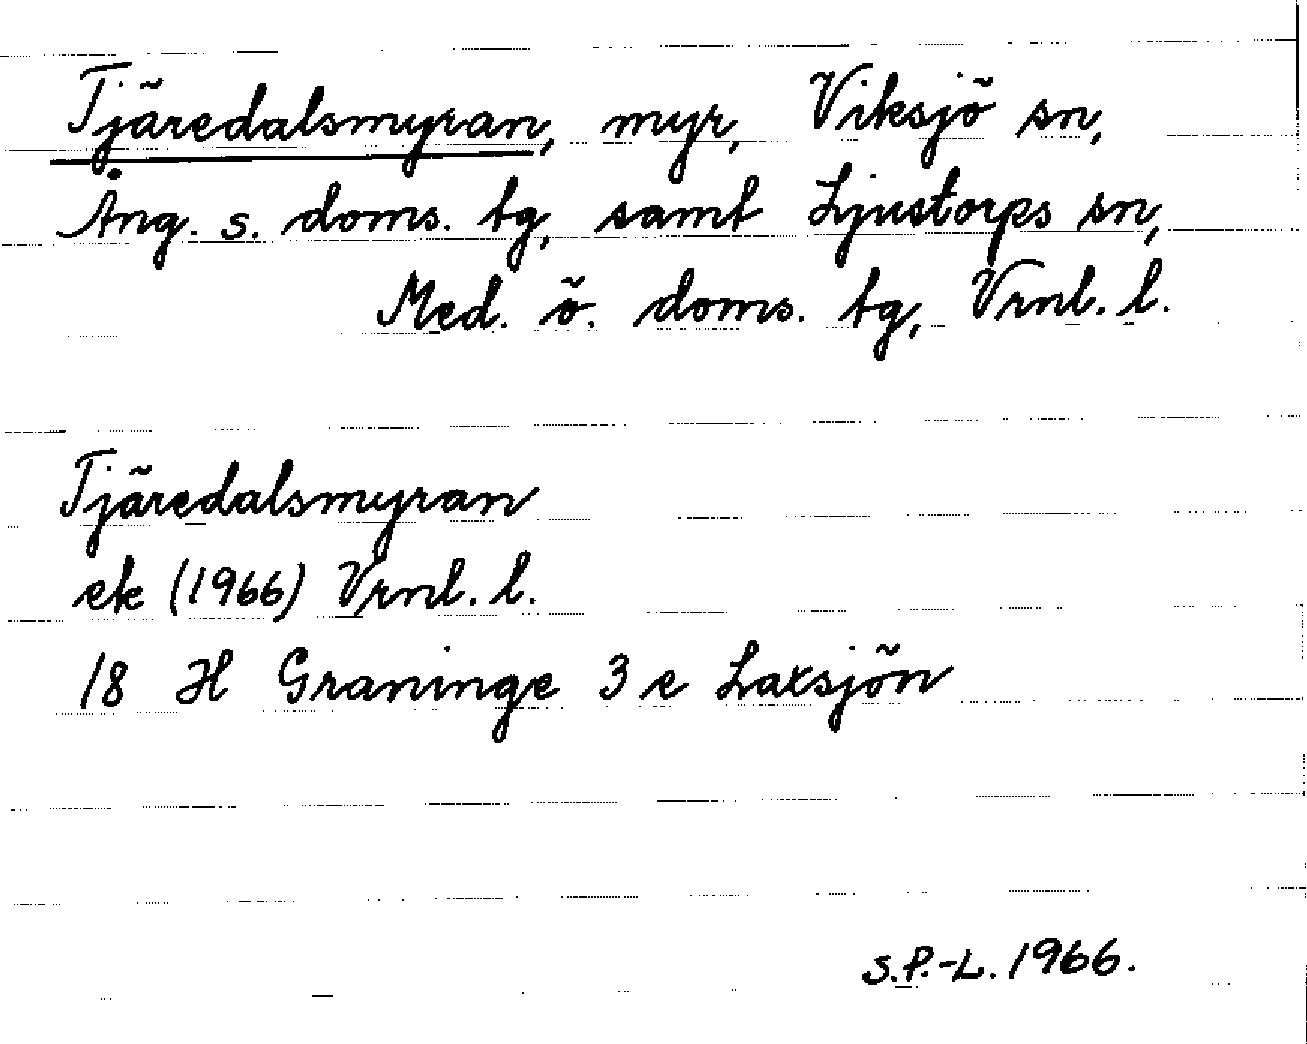 Tjäredalsmyran, myr, Viksjö sn,
Ång. s. doms. tg, samt Ljustorps sn,
Med. ö. doms. tg, Vrnl. l.
Tjäredalsmyran
ek (1966) Vrnl. l.
18 H Graninge 3 e Laxsjön
S.P.-L. 1966.